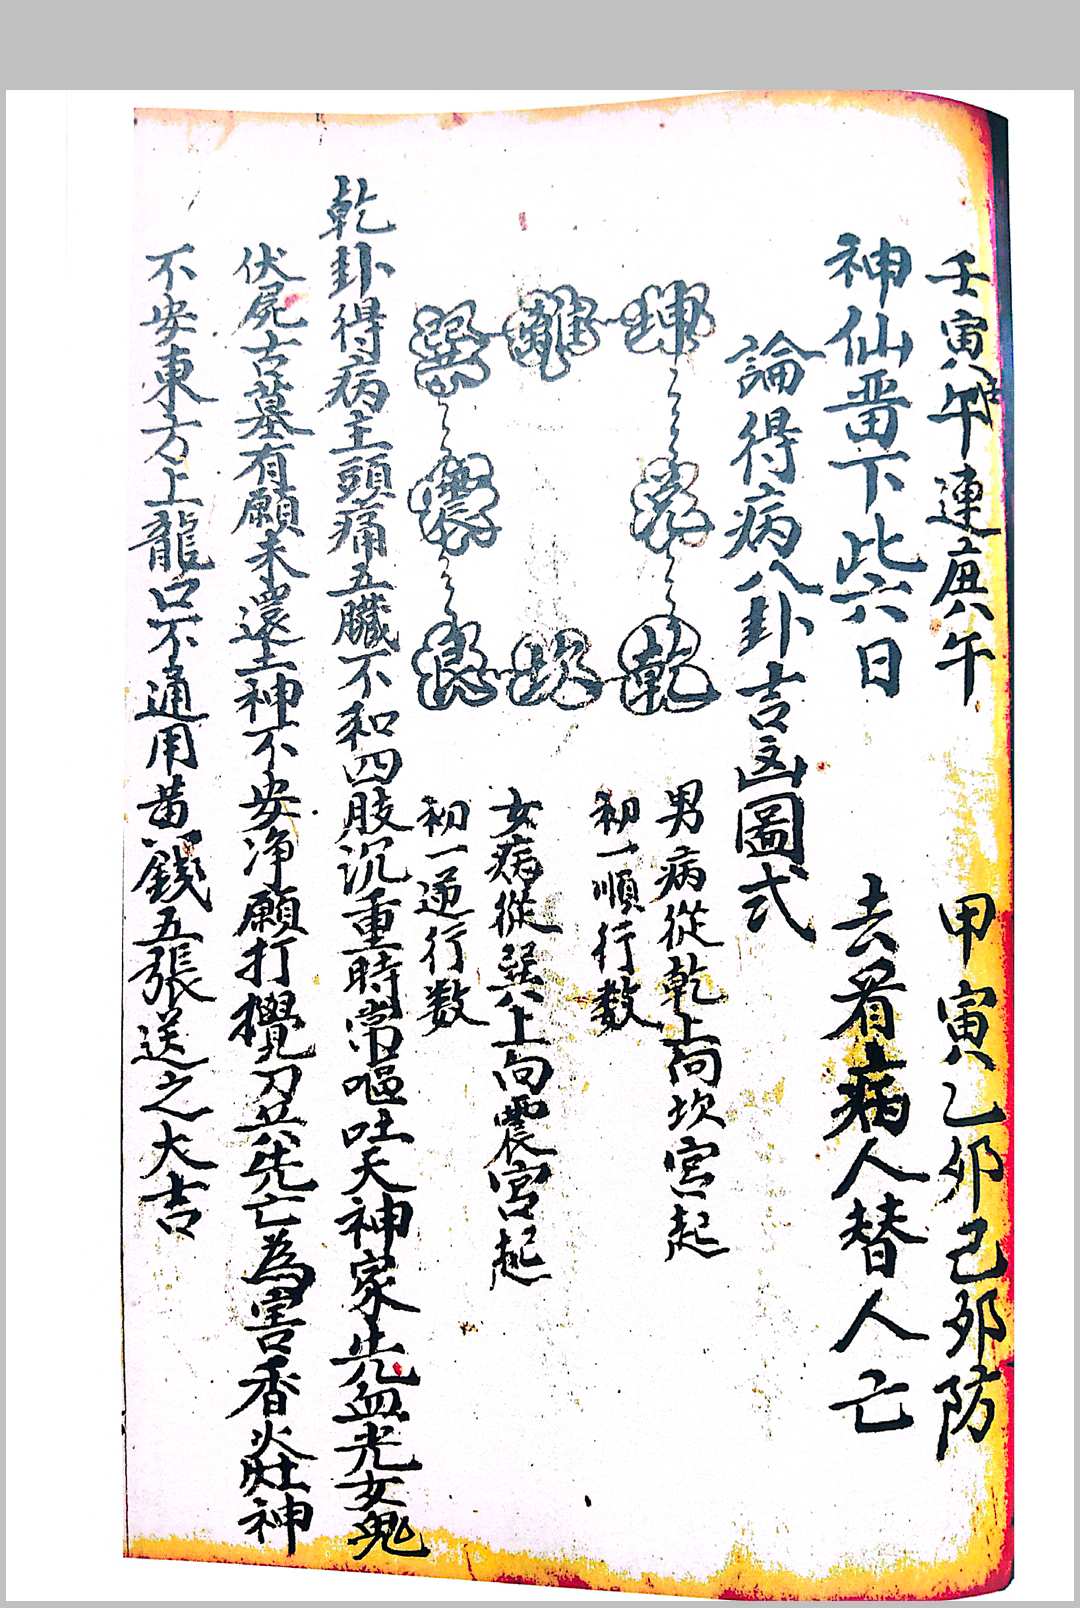 壬寅壬午連庚午　甲寅乙卯己卯防
神仙畱下此六日　去看病人替人亡
論得病八卦吉凶圖式
坤　離　巽
兌　震
乾　坎　艮
男病從乾上向坎宮起
初一順行数
女病從巽上向震宮起
初一逆行数
乾卦得病主頭痛五臟不和四肢沉重時常嘔吐天神家先血光女鬼
伏屍古墓有願未還土神不安净願打攪刀兵先亡為害香火灶神
不安東方上龍口不通用黄錢五張送之大吉